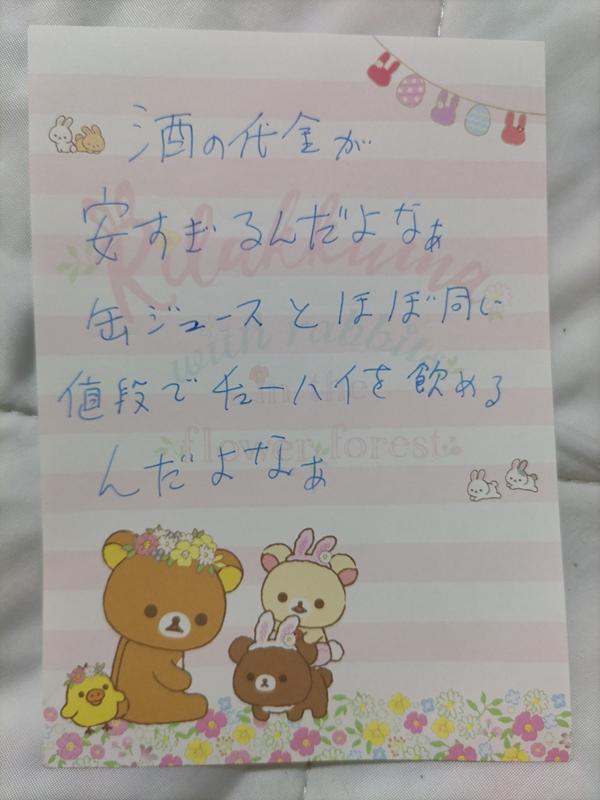 酒の代金が
安すぎるんだよなぁ
缶ジュースとほぼ同じ
値段でチューハイを飲める
んだよなぁ
Rilakkuma
with rabbits
in the
flower forest